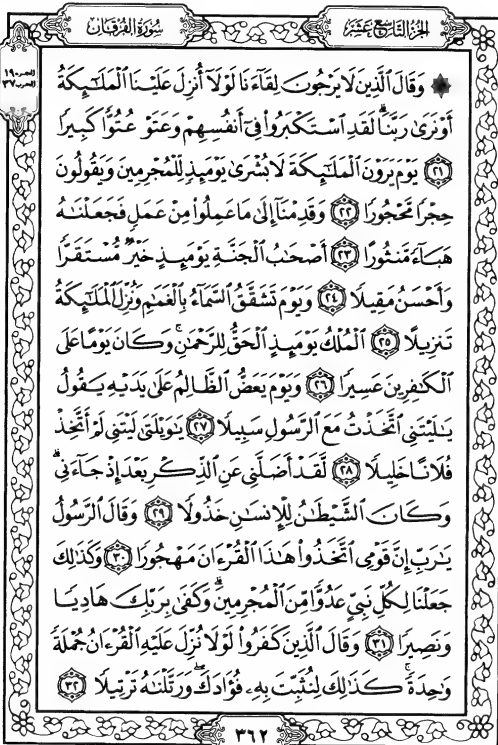 سُورَةُ الفُرْقَان
الجُزءُ التَّاسِعَ عَشَرَ
الحزب ٣٧
وَقَالَ ٱلَّذِينَ لَا يَرْجُونَ لِقَآءَنَا لَوْلَآ أُنزِلَ عَلَيْنَا ٱلْمَلَٰٓئِكَةُ
أَوْ نَرَىٰ رَبَّنَا ۗ لَقَدِ ٱسْتَكْبَرُوا۟ فِىٓ أَنفُسِهِمْ وَعَتَوْ عُتُوًّا كَبِيرًا
٢١ يَوْمَ يَرَوْنَ ٱلْمَلَٰٓئِكَةَ لَا بُشْرَىٰ يَوْمَئِذٍ لِّلْمُجْرِمِينَ وَيَقُولُونَ
حِجْرًا مَّحْجُورًا ٢٢ وَقَدِمْنَآ إِلَىٰ مَا عَمِلُوا۟ مِنْ عَمَلٍ فَجَعَلْنَٰهُ
هَبَآءً مَّنثُورًا ٢٣ أَصْحَٰبُ ٱلْجَنَّةِ يَوْمَئِذٍ خَيْرٌ مُّسْتَقَرًّا
وَأَحْسَنُ مَقِيلًا ٢٤ وَيَوْمَ تَشَقَّقُ ٱلسَّمَآءُ بِٱلْغَمَٰمِ وَنُزِّلَ ٱلْمَلَٰٓئِكَةُ
تَنزِيلًا ٢٥ ٱلْمُلْكُ يَوْمَئِذٍ ٱلْحَقُّ لِلرَّحْمَٰنِ ۚ وَكَانَ يَوْمًا عَلَى
ٱلْكَٰفِرِينَ عَسِيرًا ٢٦ وَيَوْمَ يَعَضُّ ٱلظَّالِمُ عَلَىٰ يَدَيْهِ يَقُولُ
يَٰلَيْتَنِى ٱتَّخَذْتُ مَعَ ٱلرَّسُولِ سَبِيلًا ٢٧ يَٰوَيْلَتَىٰ لَيْتَنِى لَمْ أَتَّخِذْ
فُلَانًا خَلِيلًا ٢٨ لَّقَدْ أَضَلَّنِى عَنِ ٱلذِّكْرِ بَعْدَ إِذْ جَآءَنِى ۗ
وَكَانَ ٱلشَّيْطَٰنُ لِلْإِنسَٰنِ خَذُولًا ٢٩ وَقَالَ ٱلرَّسُولُ
يَٰرَبِّ إِنَّ قَوْمِى ٱتَّخَذُوا۟ هَٰذَا ٱلْقُرْءَانَ مَهْجُورًا ٣٠ وَكَذَٰلِكَ
جَعَلْنَا لِكُلِّ نَبِىٍّ عَدُوًّا مِّنَ ٱلْمُجْرِمِينَ ۗ وَكَفَىٰ بِرَبِّكَ هَادِيًا
وَنَصِيرًا ٣١ وَقَالَ ٱلَّذِينَ كَفَرُوا۟ لَوْلَا نُزِّلَ عَلَيْهِ ٱلْقُرْءَانُ جُمْلَةً
وَٰحِدَةً ۚ كَذَٰلِكَ لِنُثَبِّتَ بِهِۦ فُؤَادَكَ ۖ وَرَتَّلْنَٰهُ تَرْتِيلًا ٣٢
٣٦٢